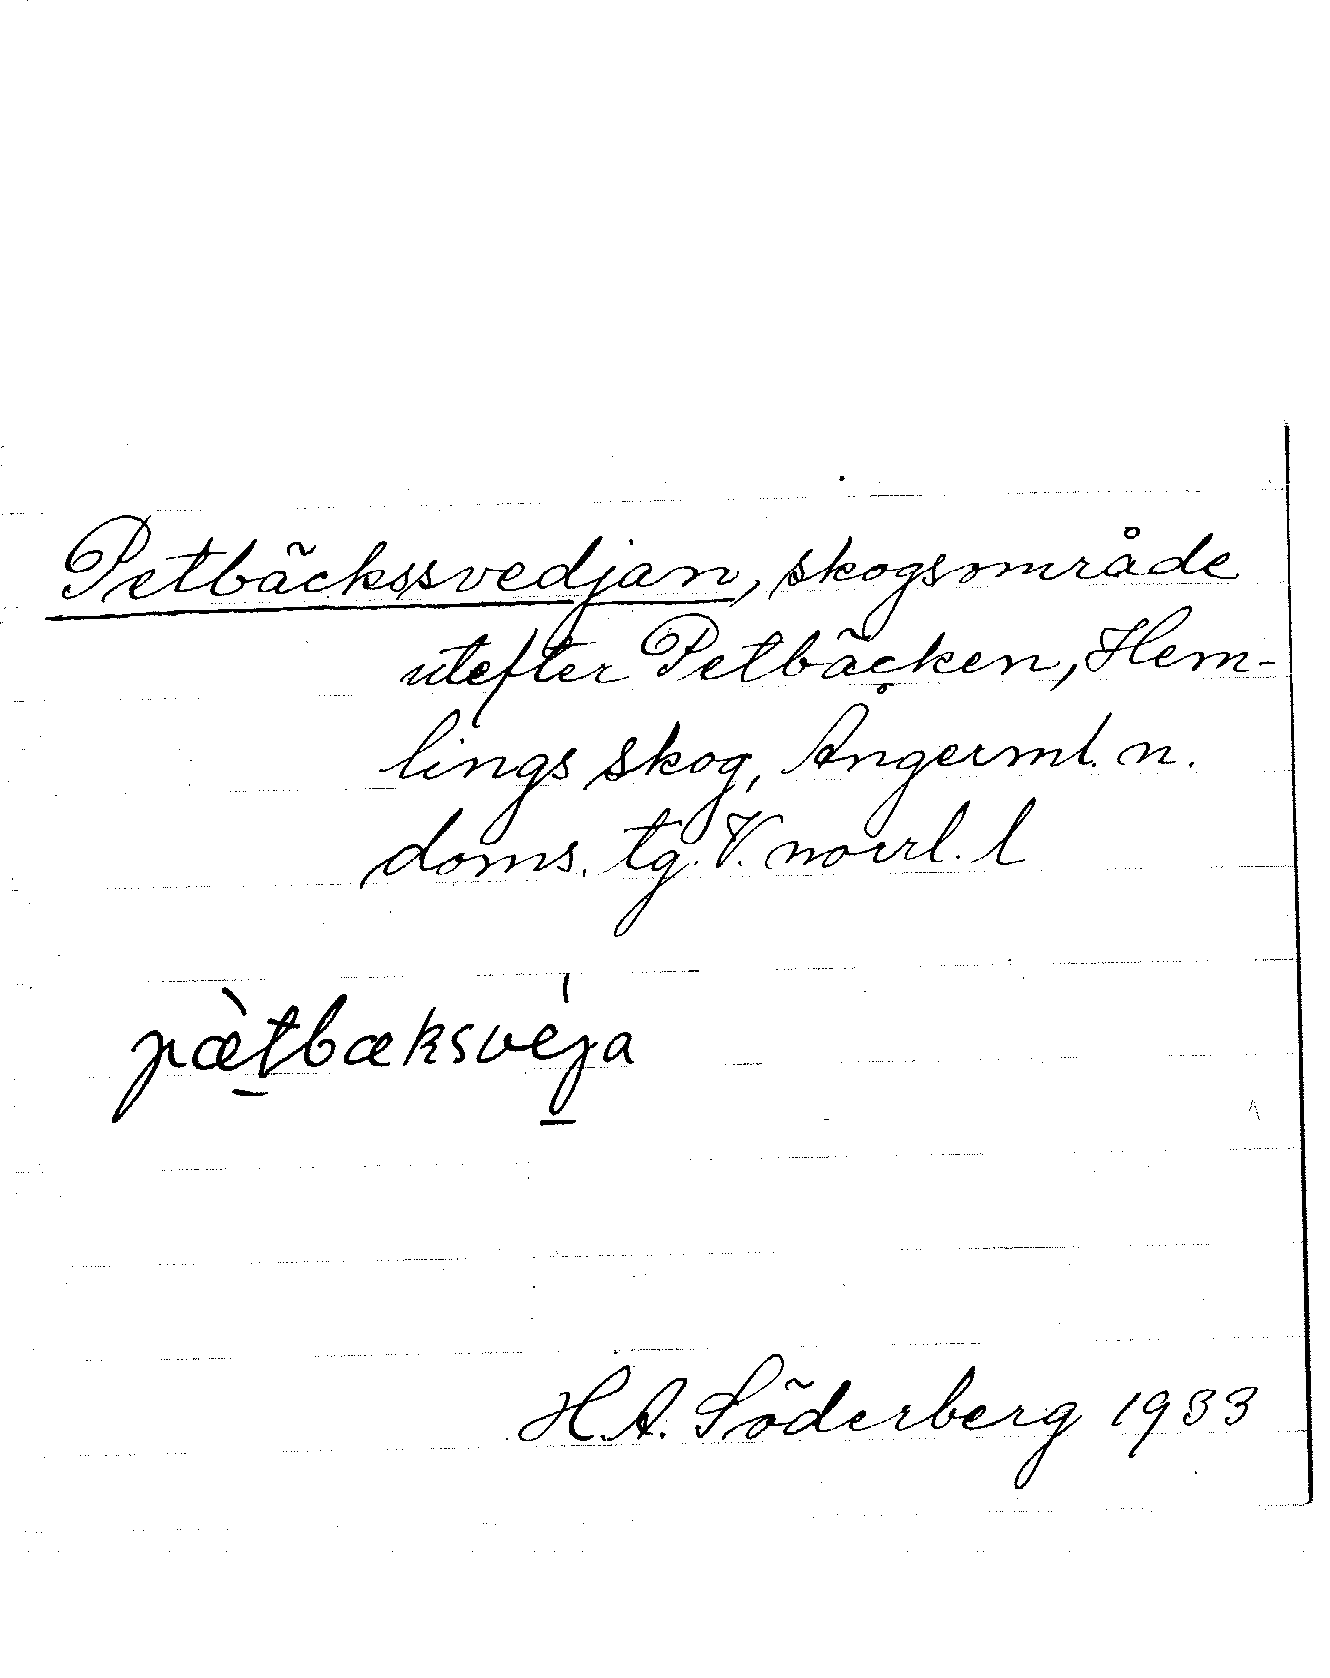 Petbäckssvedjan, skogsområde
utefter Petbäcken, Hem-
lings skog, Ångerml. n.
doms. tg. V. norrl. l
pæ̀tbæksvéja
H.A. Söderberg 1933